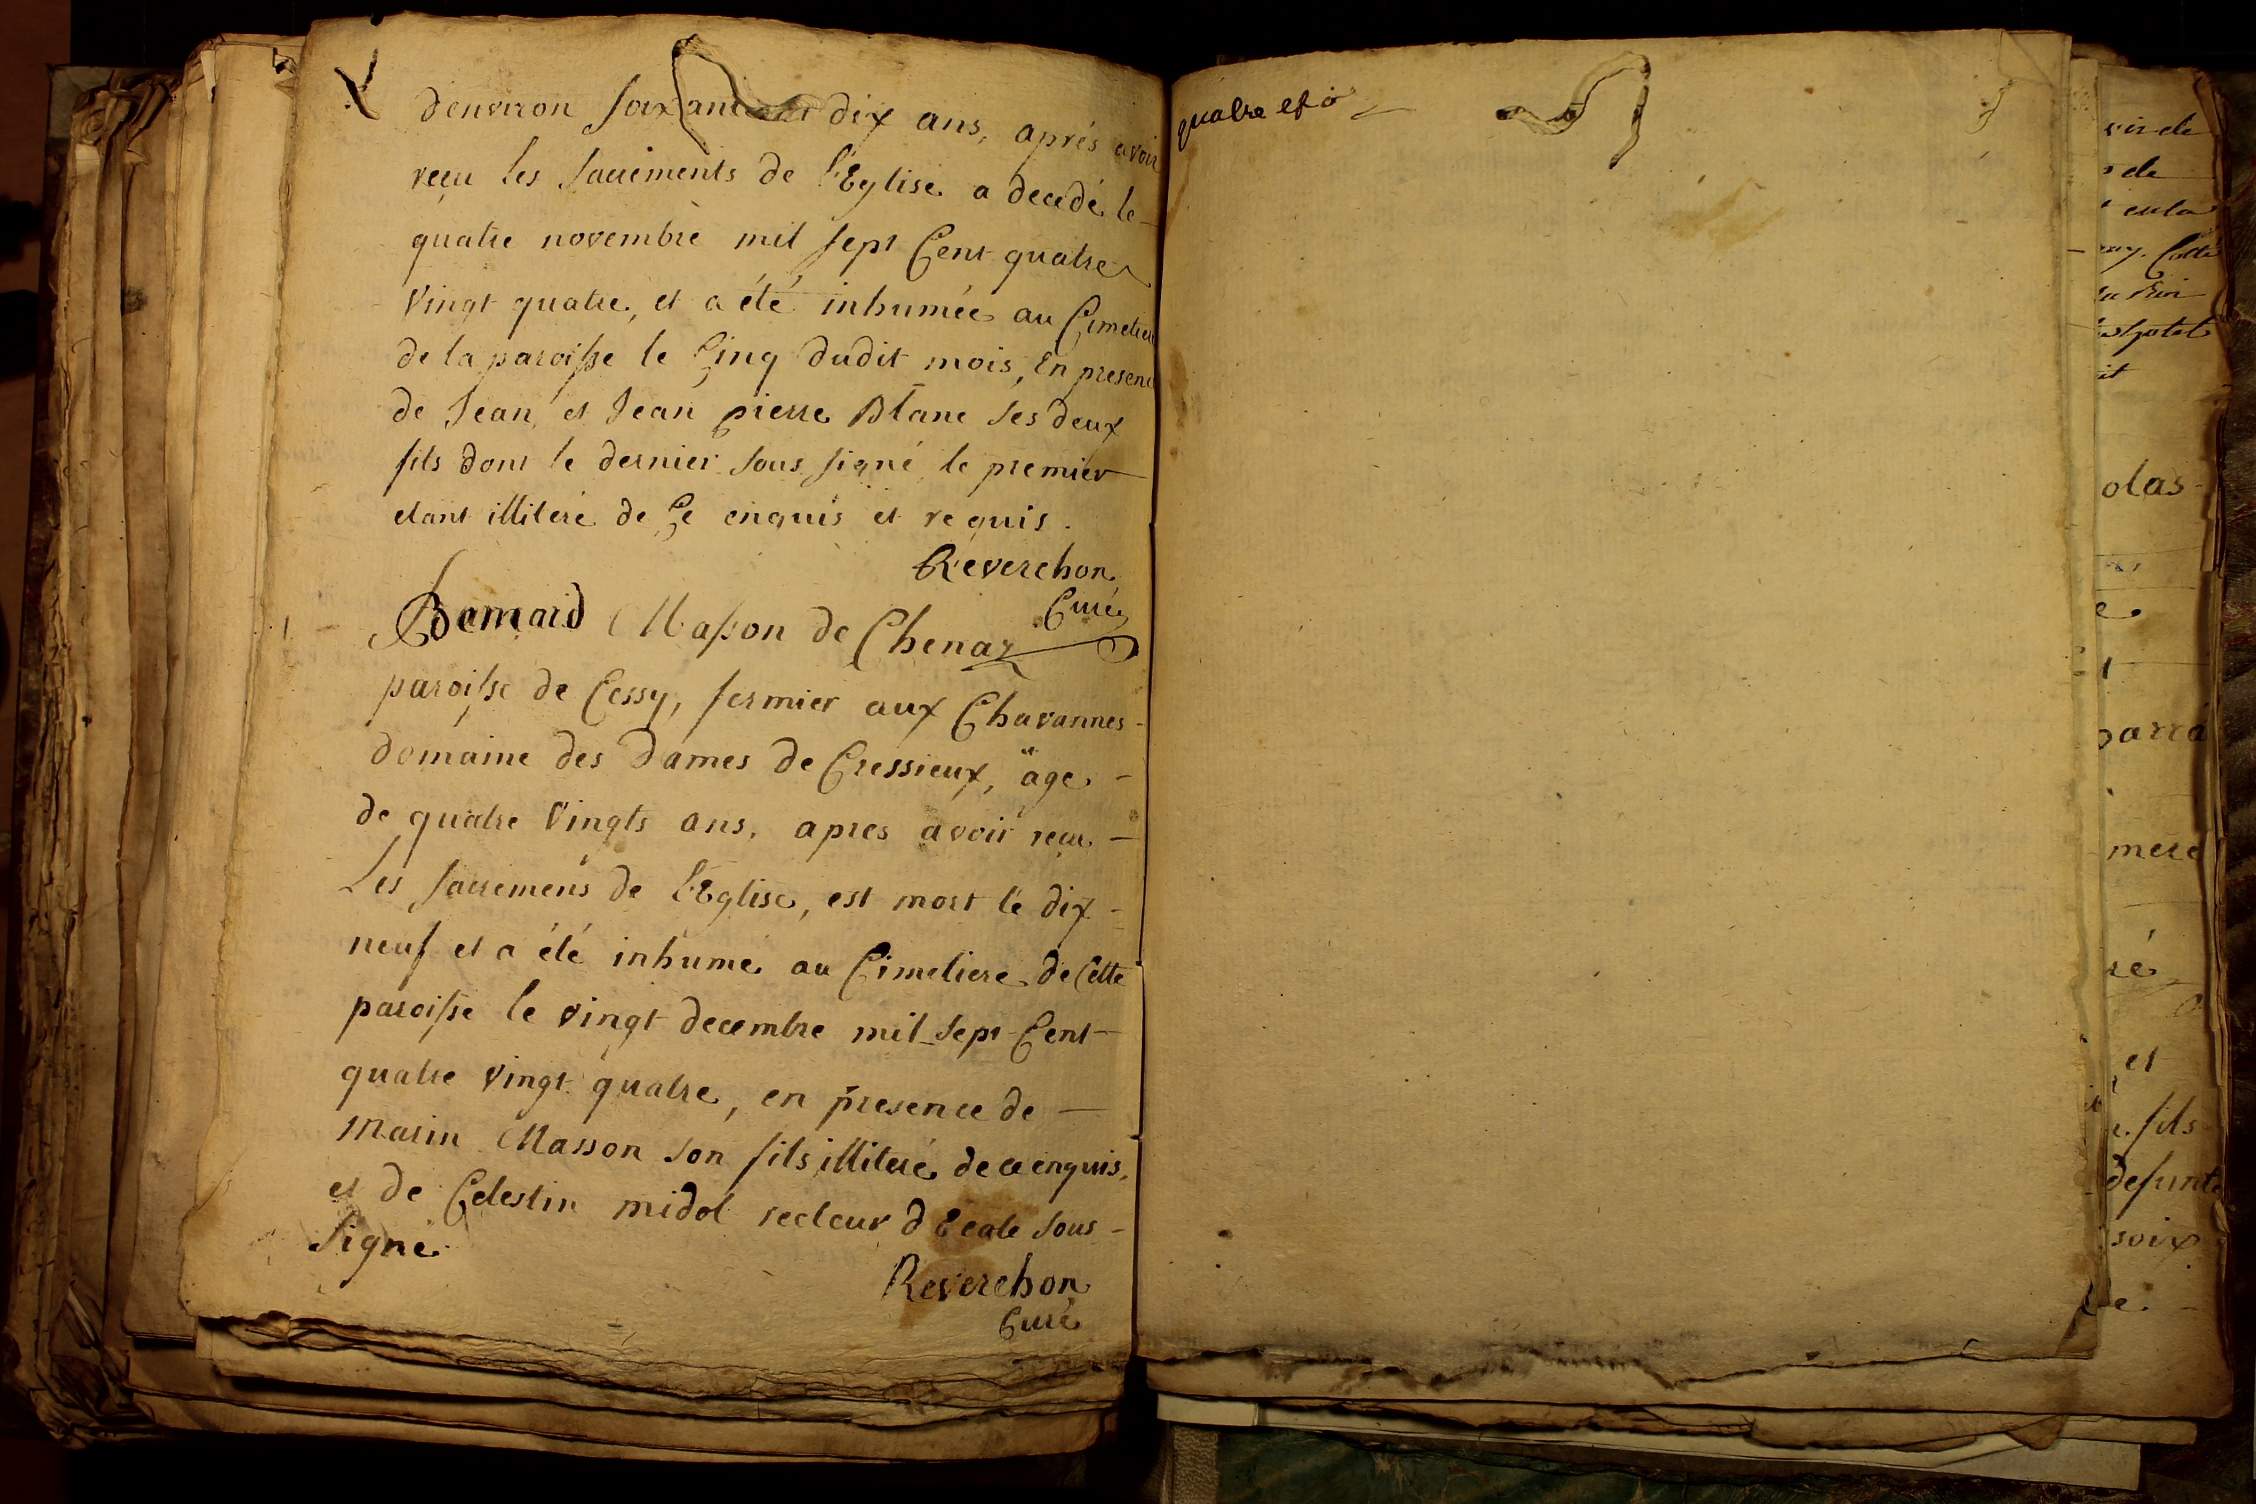 d'environ soixante et dix ans, aprés avoir
reçu les sacréments de l'Eglise a decedé le
quatre novembre mil sept Cent quatre
vingt quatre, et a été inhumée au Cimetiere
de la paroisse le Cinq dudit mois, En presence
de Jean, et Jean pierre Blanc ses deux
fils dont le dernier sous signé le premier
etant illiteré de Ce enquis et requis.
Reverchon
Curé
Bernard Masson de Chenaz
paroisse de Cessy, fermier aux Chavannes
domaine des Dames de Cressieux, age
de quatre vingts ans, apres avoir recu
Les sacremens de l'Eglise, est mort le dix
neuf et a été inhumé au Cimetiere de Cette
paroisse le vingt decembre mil sept Cent
quatre vingt quatre, en presence de
Marin Masson son fils illiteré de ce enquis,
et de Celestin midol recteur d'Ecole sous
signé
Reverchon
Curé
quatre et
vis de
de
Cotte
olas
mere
et
fils
defunt
soix